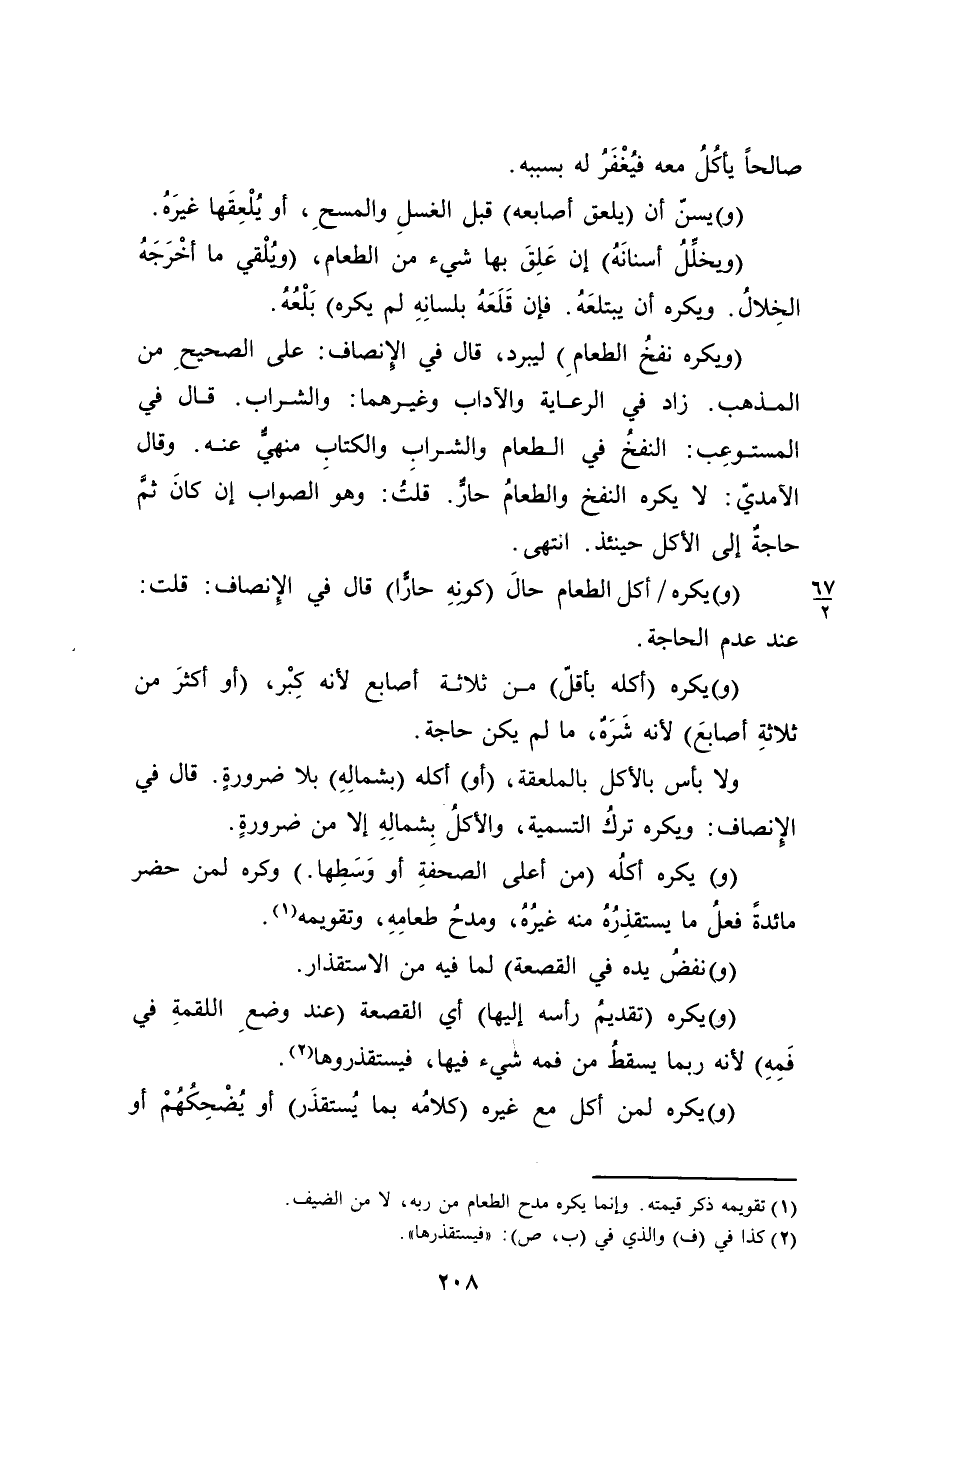 صالحاً يأكُلُ معه فيُغْفَرُ له بسببه.
(و)يسنّ أن (يلعق أصابعه) قبل الغسلِ والمسحِ، أو يُلْعِقَها غيرَهُ.
(ويخلِّلُ أسنانَهُ) إن عَلِقَ بها شيء من الطعام، (ويُلْقي ما أخْرَجَهُ
الخِلالُ. ويكره أن يبتلعَهُ. فإن قَلَعَهُ بلسانِهِ لم يكره) بَلْعُهُ.
(ويكره نفخُ الطعامِ) ليبرد، قال في الإنصاف: على الصحيحِ من
المذهب. زاد في الرعاية والآداب وغيرهما: والشراب. قال في
المستوعِب: النفخُ في الطعام والشرابِ والكتابِ منهيٌّ عنه. وقال
الآمديّ: لا يكره النفخ والطعامُ حارٌّ. قلتُ: وهو الصواب إن كانَ ثمَّ
حاجةٌ إلى الأكل حينئذ. انتهى.
(و)يكره/ أكل الطعام حالَ (كونِهِ حارًّا) قال في الإنصاف: قلت: ٦٧
٢
عند عدم الحاجة.
(و)يكره (أكله بأقلّ) من ثلاثة أصابع لأنه كِبْر، (أو أكثرَ من
ثلاثةِ أصابعَ) لأنه شَرَهٌ، ما لم يكن حاجة.
ولا بأس بالأكل بالملعقة، (أو) أكله (بشمالِهِ) بلا ضرورةٍ. قال في
الإنصاف: ويكره تركُ التسمية، والأكلُ بِشمالِهِ إلا من ضرورةٍ.
(و) يكره أكلُه (من أعلى الصحفةِ أو وَسَطِها.) وكره لمن حضر
مائدةً فعلُ ما يستقذِرُهُ منه غيرُهُ، ومدحُ طعامِهِ، وتقويمه(١).
(و)نفضُ يده في القصعة) لما فيه من الاستقذار.
(و)يكره (تقديمُ رأسه إليها) أي القصعة (عند وضعِ اللقمةِ في
فَمِهِ) لأنه ربما يسقطُ من فمه شيء فيها، فيستقذروها(٢).
(و)يكره لمن أكل مع غيره (كلامُه بما يُستقذَر) أو يُضْحِكُهُمْ أو
(١) تقويمه ذكر قيمته. وإنما يكره مدح الطعام من ربه، لا من الضيف.
(٢) كذا في (ف) والذي في (ب، ص): «فيستقذرها».
٢٠٨